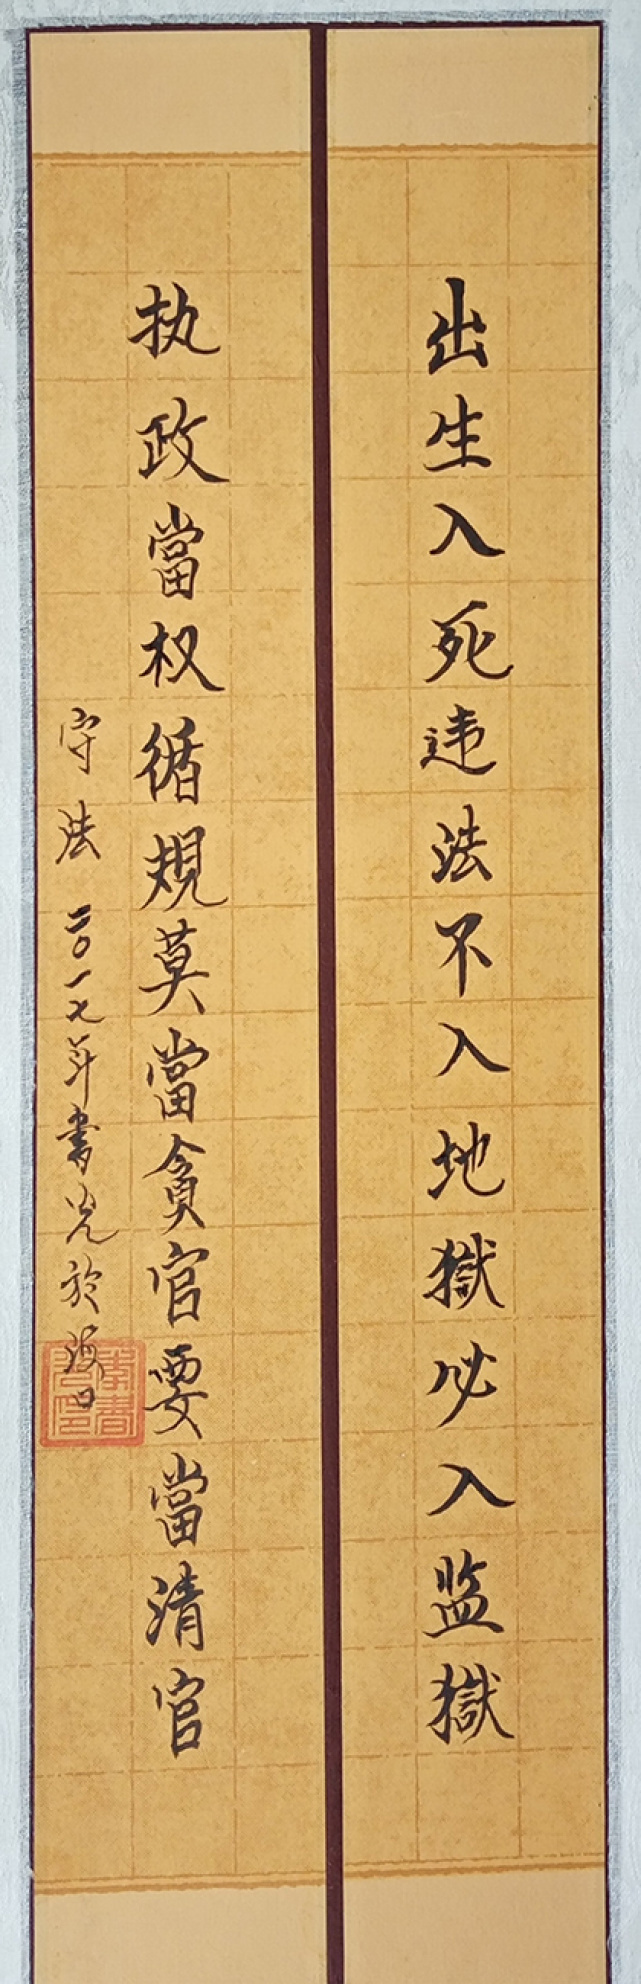 出生入死违法不入地獄必入监獄
执政當权循規莫當貪官要當清官
守法 二〇一七年書光於海口